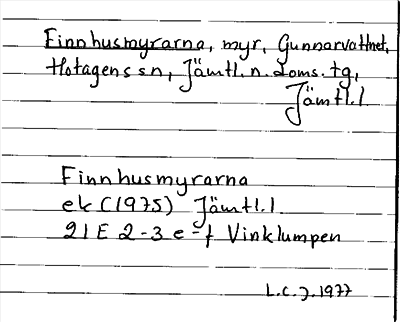 Finnhusmyrarna, myr, Gunnarvattnet,
Hotagens sn, Jämtl. n. doms. tg,
Jämtl. l
Finnhusmyrarna
ek (1975) Jämtl. l
21 E 2-3 e-f Vinklumpen
L.C.J. 1977